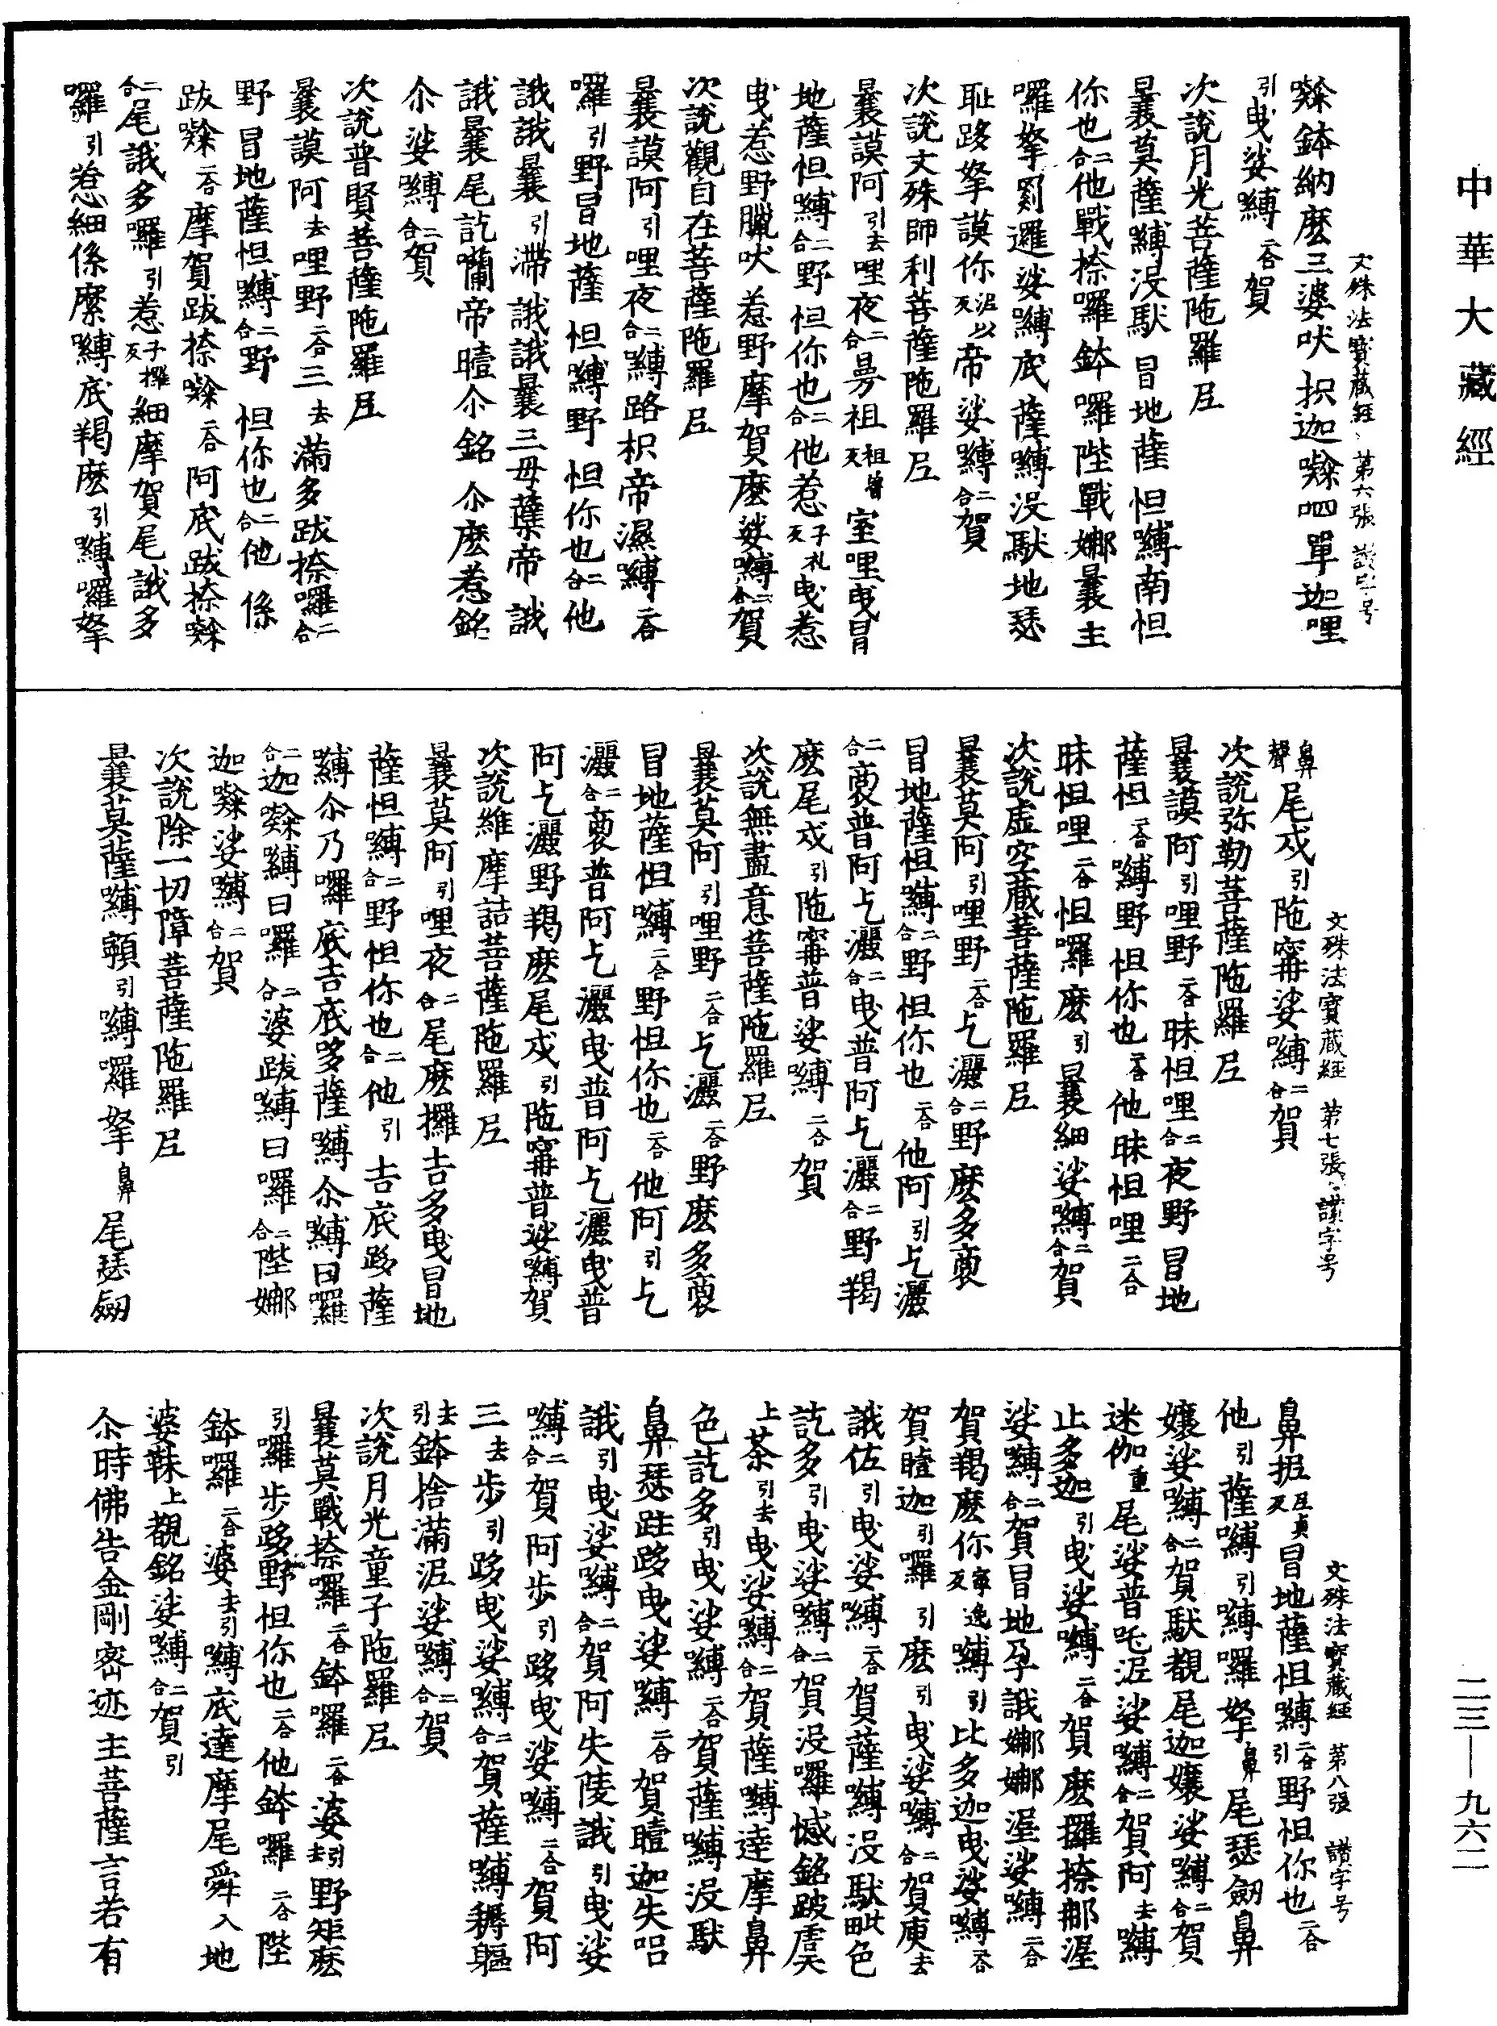 中華大藏經
文殊法寶藏經 第六張 讚字号
㗚鉢納麽三婆吠抧迦㗚呬單迦哩
引曳娑嚩二合賀
次說月光菩薩陁羅𡰱
曩莫薩嚩没馱冒地薩怛嚩南怛
你也二合他戰捺囉鉢囉陛戰娜曩主
囉拏𦋺邏娑嚩底薩嚩没馱地瑟
耻路拏謨你泥以反帝娑嚩二合賀
次說文殊師利菩薩陁羅𡰱
曩謨阿引去哩夜二合曼祖祖曾反室哩曳冒
地薩怛嚩二合野怛你也二合他惹子札反曳惹
曳惹野臘吠惹野摩賀麽娑嚩二合賀
次說觀自在菩薩陁羅𡰱
曩謨阿引哩夜二合嚩路枳帝濕嚩二合
囉引野冒地薩怛嚩野怛你也二合他
誐誐曩引滯誐誐曩三毋蘖帝誐
誐曩尾訖蘭帝曀尒銘尒麽惹銘
尒娑嚩二合賀
次說普賢菩薩陁羅𡰱
曩謨阿去哩野二合三去滿多跋捺囉二合
野冒地薩怛嚩二合野怛你也二合他係
跋㗚二合摩賀跋捺㗚二合阿底跋捺㗚
二合尾誐多囉引惹子攞反細摩賀尾誐多
囉引惹細係縻嚩底羯麽引嚩囉拏
文殊法寶藏經 第七張 讚字号
鼻聲尾戍引陁甯娑嚩二合賀
次說弥勒菩薩陁羅𡰱
曩謨阿引哩野二合昧怛哩二合夜野冒地
薩怛二合嚩野怛你也二合他昧怛哩二合
昧怛哩二合怛囉麽引曩細娑嚩二合賀
次說虛空藏菩薩陁羅𡰱
曩莫阿引哩野二合乞灑二合野麽多裒
冒地薩怛嚩二合野怛你也二合他阿引乞灑
二合裒普阿乞灑二合曳普阿乞灑二合野羯
麽尾戍引陁甯普娑嚩二合賀
次說無盡意菩薩陁羅𡰱
曩莫阿引哩野二合乞灑二合野麽多裒
冒地薩怛嚩二合野怛你也二合他阿引乞
灑二合裒普阿乞灑曳普阿乞灑曳普
阿乞灑野羯麽尾戍引陁甯普娑嚩賀
次說維摩詰菩薩陁羅𡰱
曩莫阿引哩夜二合尾麽攞吉多曳冒地
薩怛嚩二合野怛你也二合他引吉底路薩
嚩尒乃囉底吉底路薩嚩尒嚩曰羅
二合迦㗚嚩曰囉二合婆跋嚩曰囉二合陛娜
迦㗚娑嚩二合賀
次說除一切障菩薩陁羅𡰱
曩莫薩嚩頞引嚩囉拏鼻尾瑟劒
文殊法寶藏經 第八張 讚字号
鼻抳𡰱貞反冒地薩怛嚩二合引野怛你也二合
他引薩嚩引嚩囉拏鼻尾瑟劒鼻
嬢娑嚩二合賀馱覩尾迦嬢娑嚩二合賀
迷伽重尾娑普吒泥娑嚩二合賀阿去嚩
止多迦引曳娑嚩二合賀麽攞捺那渥
娑嚩二合賀冒地孕誐娜娜渥娑嚩二合
賀羯麽你寧逸反嚩引比多迦曳娑嚩二合
賀曀迦引囉引麽引曳娑嚩二合賀庾去
誐佐引曳娑嚩二合賀薩嚩没馱毗色
訖多引曳娑嚩二合賀没囉憾銘跛𧆑
上荼引去曳娑嚩二合賀薩嚩達摩鼻
色訖多引曳娑嚩二合賀薩嚩没馱
鼻瑟跓路曳娑嚩二合賀曀迦失呂
誐引曳娑嚩二合賀阿失陵誐引曳娑
嚩二合賀阿步引路曳娑嚩二合賀阿
三去步引路曳娑嚩二合賀薩嚩耨軀
去引鉢捨滿泥娑嚩二合賀
次說月光童子陁羅𡰱
曩莫戰捺囉二合鉢囉二合婆去引野矩麽
引囉步路野怛你也二合他鉢囉二合陛
鉢囉二合婆去引嚩底達摩尾舜入地
婆靺上覩銘娑嚩二合賀引
尒時佛告金剛密迹主菩薩言若有
二三—九六二